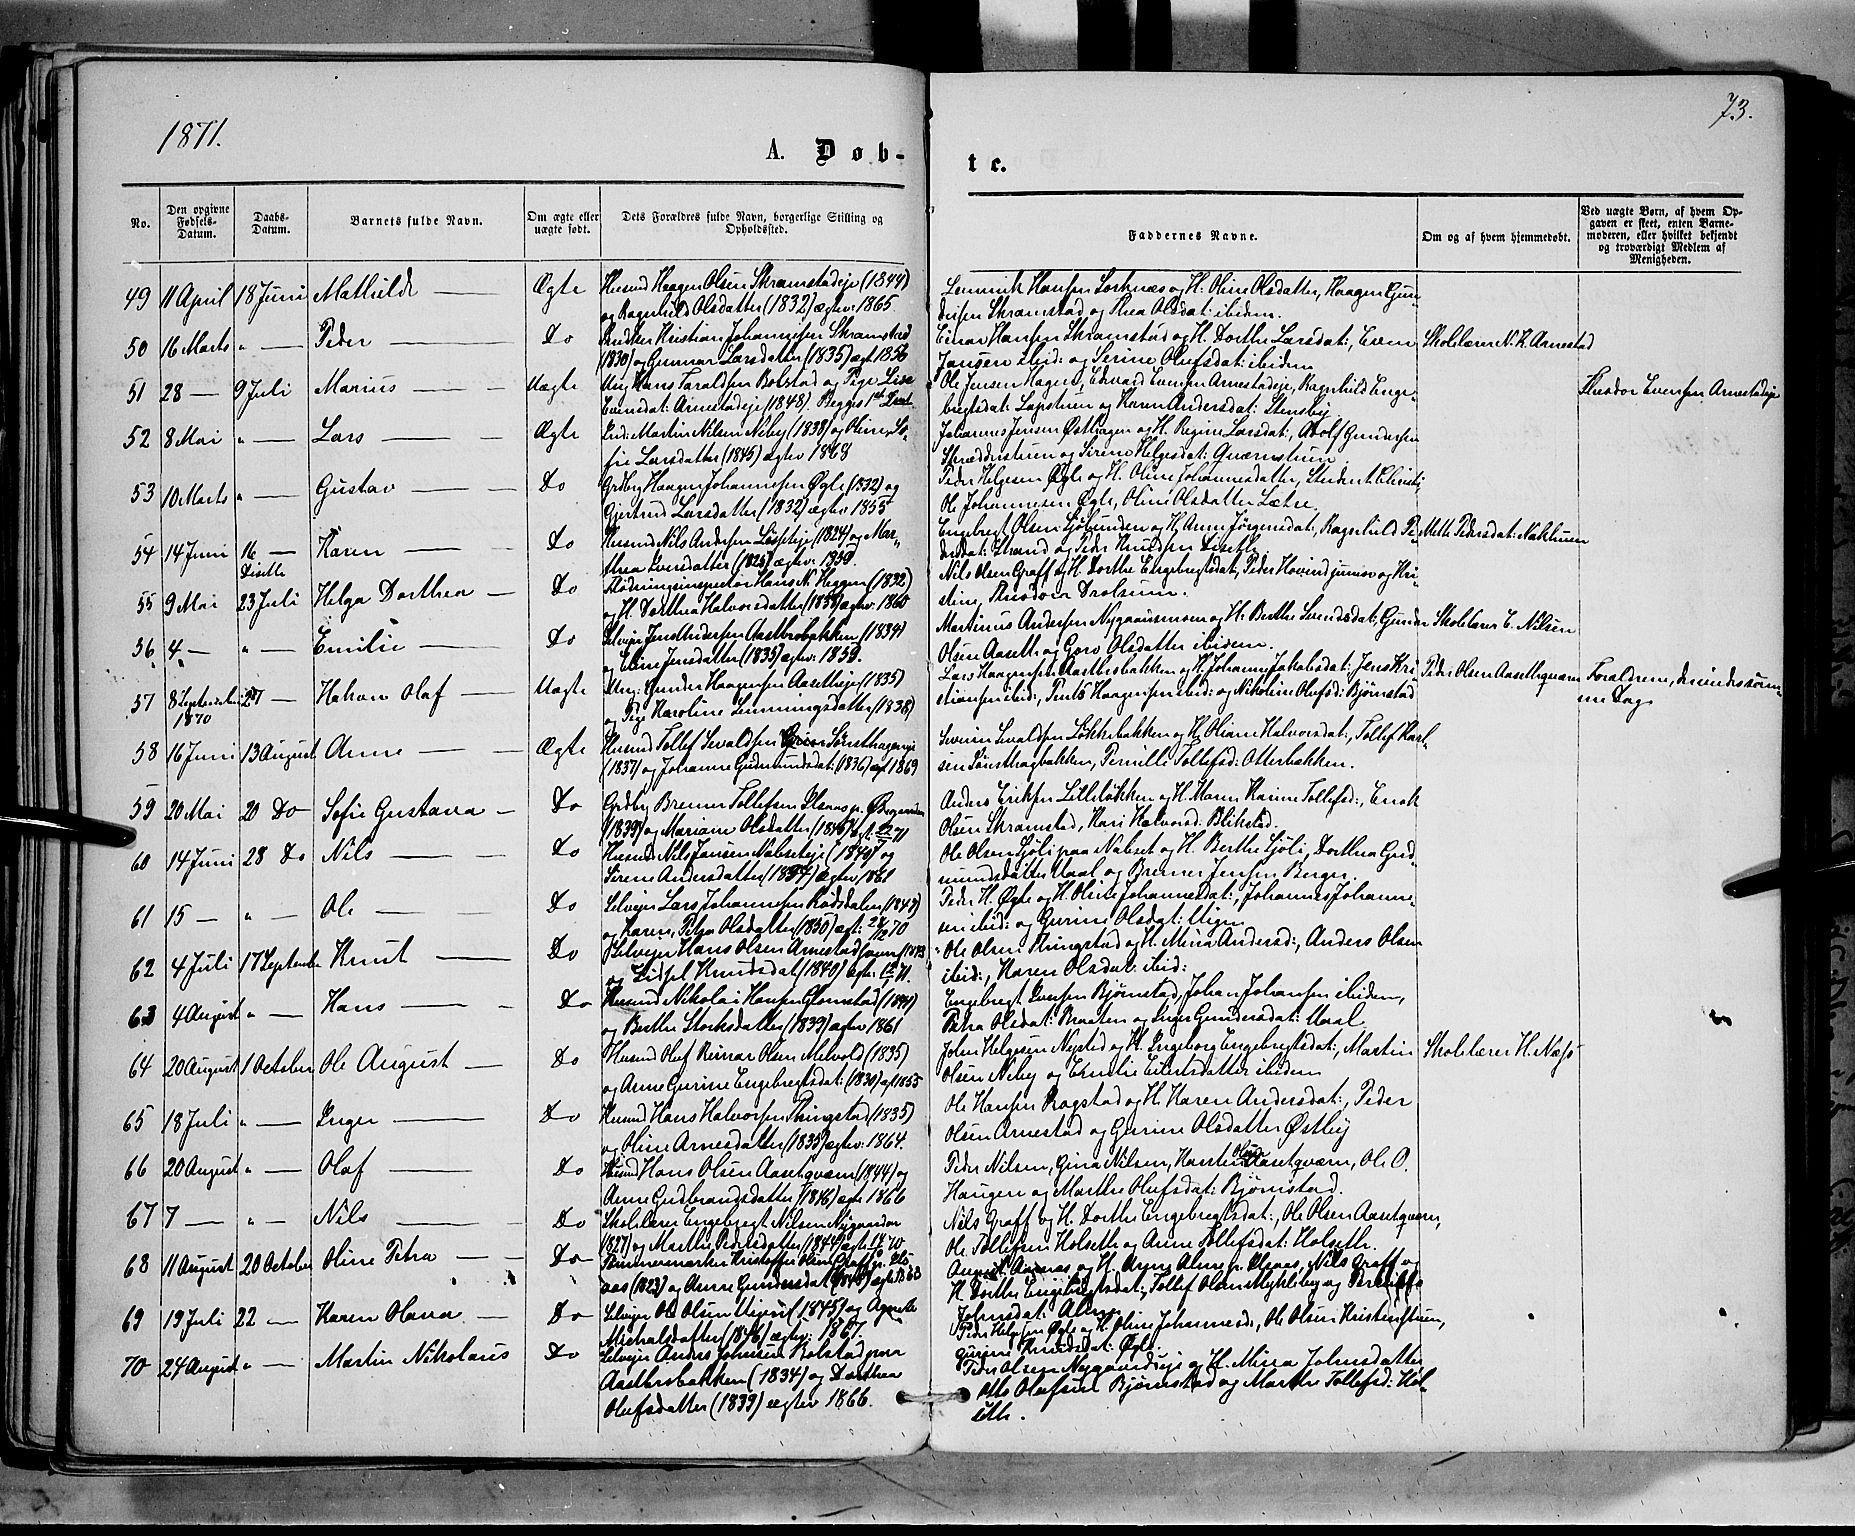 1871.
73.
A. Døb-
te.
No.
Den opgivne Fødsels-Datum.
Daabs-Datum.
Barnets fulde Navn.
Om ægte eller uægte født.
Dets Forældres fulde Navn, borgerlige Stilling og Opholdssted.
Faddernes Navne.
Om og af hvem hjemmedøbt.
Ved uægte Børn, af hvem Op-
gaven er skeet, enten Barne-
moderen, eller hvilket bekjendt
og troværdigt Medlem af
Menigheden.
49 11 April 18 Juni Mathilde Ægte Husmd Haagen Olsen Skramstadeje (1844)
og Ragnhild Olsdatter (1832) ægtev: 1865.
Hansen og H. Oline Olsdatter, Haagen Gun-
dersen Skramstad og Thea Olsdat: ibidem.
50 16 Marts " Peder Do Kristian Johannesen Skramstad
(1830) og Gunnor Larsdatter (1835) ægt 1856
Einar Hansen Skramstad og H. Dorthe Larsdat:, Even
Jansen ibid: og Serine Olufsdat: ibidem
Skolelærer N. K. Arnestad
51 28 — 9 Juli Marius Uægte Ung: Hans Taraldsen Bolstad og Pige Lise
Evensdat: Arnestadeje (1848). Begges 1ste
Ole Jensen Hagen, Edvard Evensen Arnestadeje, Ragnhild Enge-
bregtsdat: og Karen Andersdat: Stensby.
Theodor Evensen Arnestadeje
52 8 Mai " Lars Ægte Martin Nilsen Neby (1838) og Oline So-
fie Larsdatter (1845) ægtev 1868
Johannes Jensen Østhagen og H. Regine Larsdat:, Adolf Gundersen
og Sirene Helgesdat: Quærnstuen
53 10 Marts " Gustav Do Grdbr Haagen Johannesen Øgle (1832) og
Gjertrud Larsdatter (1832) ægtev 1855
Peder Helgesen Øgle og H. Oline Johannesdatter, Student
Ole Johannesen Øgle, Oline Olsdatter Lætre
54 14 Juni 16 — Karen Do Husmd Nils Andersen (1824) og Mar-
Disetle
threa Iversdatter (1825) ægtev: 1859.
Engebregt Olsen Sjølunden og H. Anne Jørgensdat:, Ragnhild Pe-
dersdat: Strand og Peder Knudsen Diseth
Mette Pedersdat: Nakkuen
55 9 Mai 23 Juli Helga Dorthea Do Flødningsinspector Hans N. Heggen (1832)
og H. Dorthea Halvorsdatter (1839) ægtev: 1860
Nils Olsen Graff og H. Dorthe Engebregtsdat, Peder Hovind junior og Kri-
stine, Theodor Drolsum.
56 4 — " Emilie Do Selvejer Jens Andersen Aasetbrobakken (1834)
og Eline Jensdatter (1835) ægtev: 1859.
Martinus Andersen Nygaardsmoen og H. Berthe Svendsdat:, Gunder
Olsen Aaseth og Goro Olsdatter ibidem.
Skolelærer E. Nilsen
57 8 September 27 — Hakon Olaf Uægte Ung: Gunder Haagensen Aasetheje (1835)
1870
og Pige Karoline Lenningsdatter (1838)
Lars Haagensen Aasetbrobakken og H. Johanne Jakobsdat:, Jens Kri-
stiansen ibid:, Haagensen ibid: og Nikoline Olufsd: Bjørnstad
Peder Olsen Aasethquærn
Forældrene, desuden
58 16 Juni 13 August Anne Ægte Husmd Tollef Sevaldsen Sønsthageneje
(1837) og Johanne Gudmundsdat: (1836) ægt 1869
Severin Sevaldsen Løkkebakken og H. Oliane Halvorsdat:, Tollef Karl-
sen Sønsthagbakken, Pernille Tollefsd: Otterbakken.
59 20 Mai 20 Do Sofie Gustava Do Grdbr Brenner Tollefsen
(1839) og Mariane Olsdatter (1846)
Anders Eriksen Lilleløkken og H. Maren Karine Tollefsd:, Enok
Olsen Skramstad, Kari Halvorsd: Blikstad.
60 14 Juni 28 Do Nils Do Husmd Nils Jansen Nabseteje (1840) og
Sirene Andersdatter (1837) ægtev 1861
Ole Olsen Sjøli paa Nabset og H. Berthe Sjøli, Dorthea Gud-
mundsdatter Uaal og Brenner Jensen Berger.
61 15 — " Ole Do Selvejer Lars Johannesen Rødsdalen (1843)
og Karen Petra Olsdatter (1850) ægt:
Peder H. Øgle og H. Oline Johannesdat:, Johannes Johanne-
sen ibid: og Gurine Olsdat:
62 4 Juli 17 September Knut Do Selvejer Hans Olsen Arnestad
og Lidsel Knudsdat (1840) ægtv:
Ole Olsen Ringstad og H. Mina Andersd:, Anders Olsen
ibid:, Karen Olsdat: ibid:
63 4 August " Hans Do Husmd Nikolai Hansen Glomstad (1841)
og Berthe Størksdatter (1839) ægtev 1861
Engebregt Iversen Bjørnstad, Johan Johansen ibidem,
Petra Olsdat: Braaten og Inger Gundersdat: Uaal
64 20 August 1 October Ole August Do Husmd Oluf Reinar Olsen Melvold (1835)
og Anne Gurine Engebregtsdat: (1830) ægt 1855
John Helgesen Nysted og H. Ingeborg Engebregtsdat:, Martin
Olsen Neby og Emilie Eilertsdatter ibidem
Skolelærer H. Næss
65 18 Juli " Inger Do Husmd Hans Halvorsen Ringstad (1835)
og Oline Arnesdatter (1835) ægtev: 1864.
Ole Hansen Rogstad og H. Karen Andersdat:, Peder
Olsen Arnestad og Gurine Olsdatter Østby
66 20 August " Olaf Do Husmd Hans Olsen Aasetquærn (1844) og
Anne Gudbrandsdatter (1846) ægte 1866
Peder Nilsen, Gina Nilsen, Karsten Olsen Aasetquærn, Ole O.
Haugen og Marthe Olufsdat: Bjørnstad.
67 7 — " Nils Do Skolelærer Engebregt Nilsen Nygaarden
(1827) og Marthe Pedersdatter (1844) ægte
Nils Graff og H. Dorthe Engebregtsdat:, Ole Olsen Aasetquærn,
Ole Tollefsen Holseth og Anne Tollefsdat: Holseth.
68 11 August 20 October Oline Petra Do Kristoffer Olsen
(1823) og Anne Gundersdat
August Aasnæs og H. Agnes Alm Nils Graff og
H. Dorthe Engebregtsdat:, Tollef Olsen Myhleby og
Johnsdat: Alm
69 19 Juli 22 — Karen Olava Do Selvejer Ole Olsen (1845) og Agnete
Michalsdatter (1846) ægtev: 1867.
Peder Helgesen Øgle og H. Oline Johannesd:, Ole Olsen Kristenstuen,
Gurine Knudsdat: Øgle.
70 24 August " Martin Nikolaus Do Selvejer Anders Johnsen Bolstad paa
Aasetbrobakken (1834) og Dorthea
Olufsdatter (1839) ægtev 1866.
Peder Olsen Nygaardseje og H. Mina Johnsdatter,
Otto Olufsen Bjørnstad og Marthe Tollefsd: Hol-
seth.